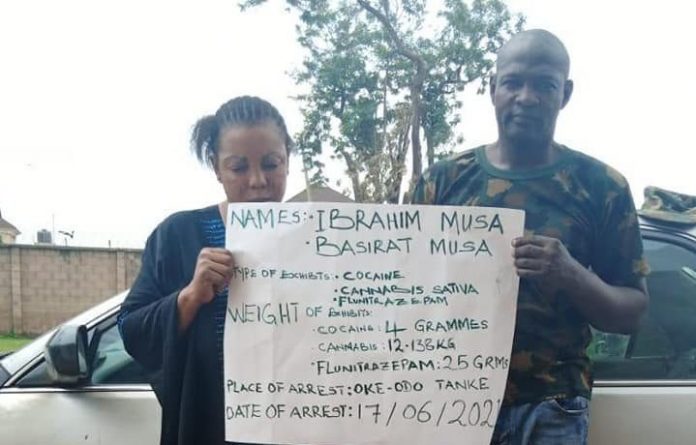 NAMES:· IBRAHIM MUSA
· BASIRAT MUSA
TYPE OF EXHIBITS:· COCAINE
· CANNABIS SATIVA
· FLUNITRAZEPAM
WEIGHT OF EXHIBITS:
· COCAINE: 4 GRAMMES
· CANNABIS: 12·138KG
· FLUNITRAZEPAM: 25 GRMS
PLACE OF ARREST: OKE-ODO TANKE
DATE OF ARREST: 17/06/2021